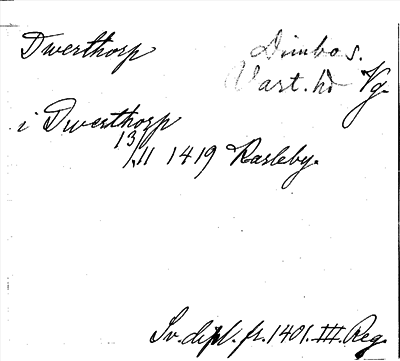 Dwerthorp
Dimbo s.
Vart. hd Vg.
i Dwerthorp
13/11 1419 Rasleby.
Sv. dipl. fr. 1401. III. Reg.